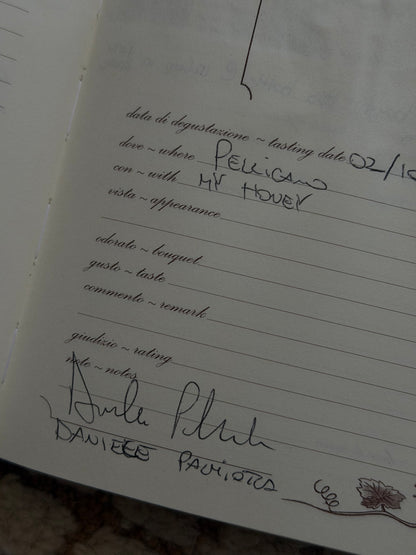 data di degustazione ~ tasting date 02/10
dove ~ where PELLICANO
con ~ with MY HONEY
vista ~ appearance
odorato ~ bouquet
gusto ~ taste
commento ~ remark
giudizio ~ rating
note ~ notes
DANIELE